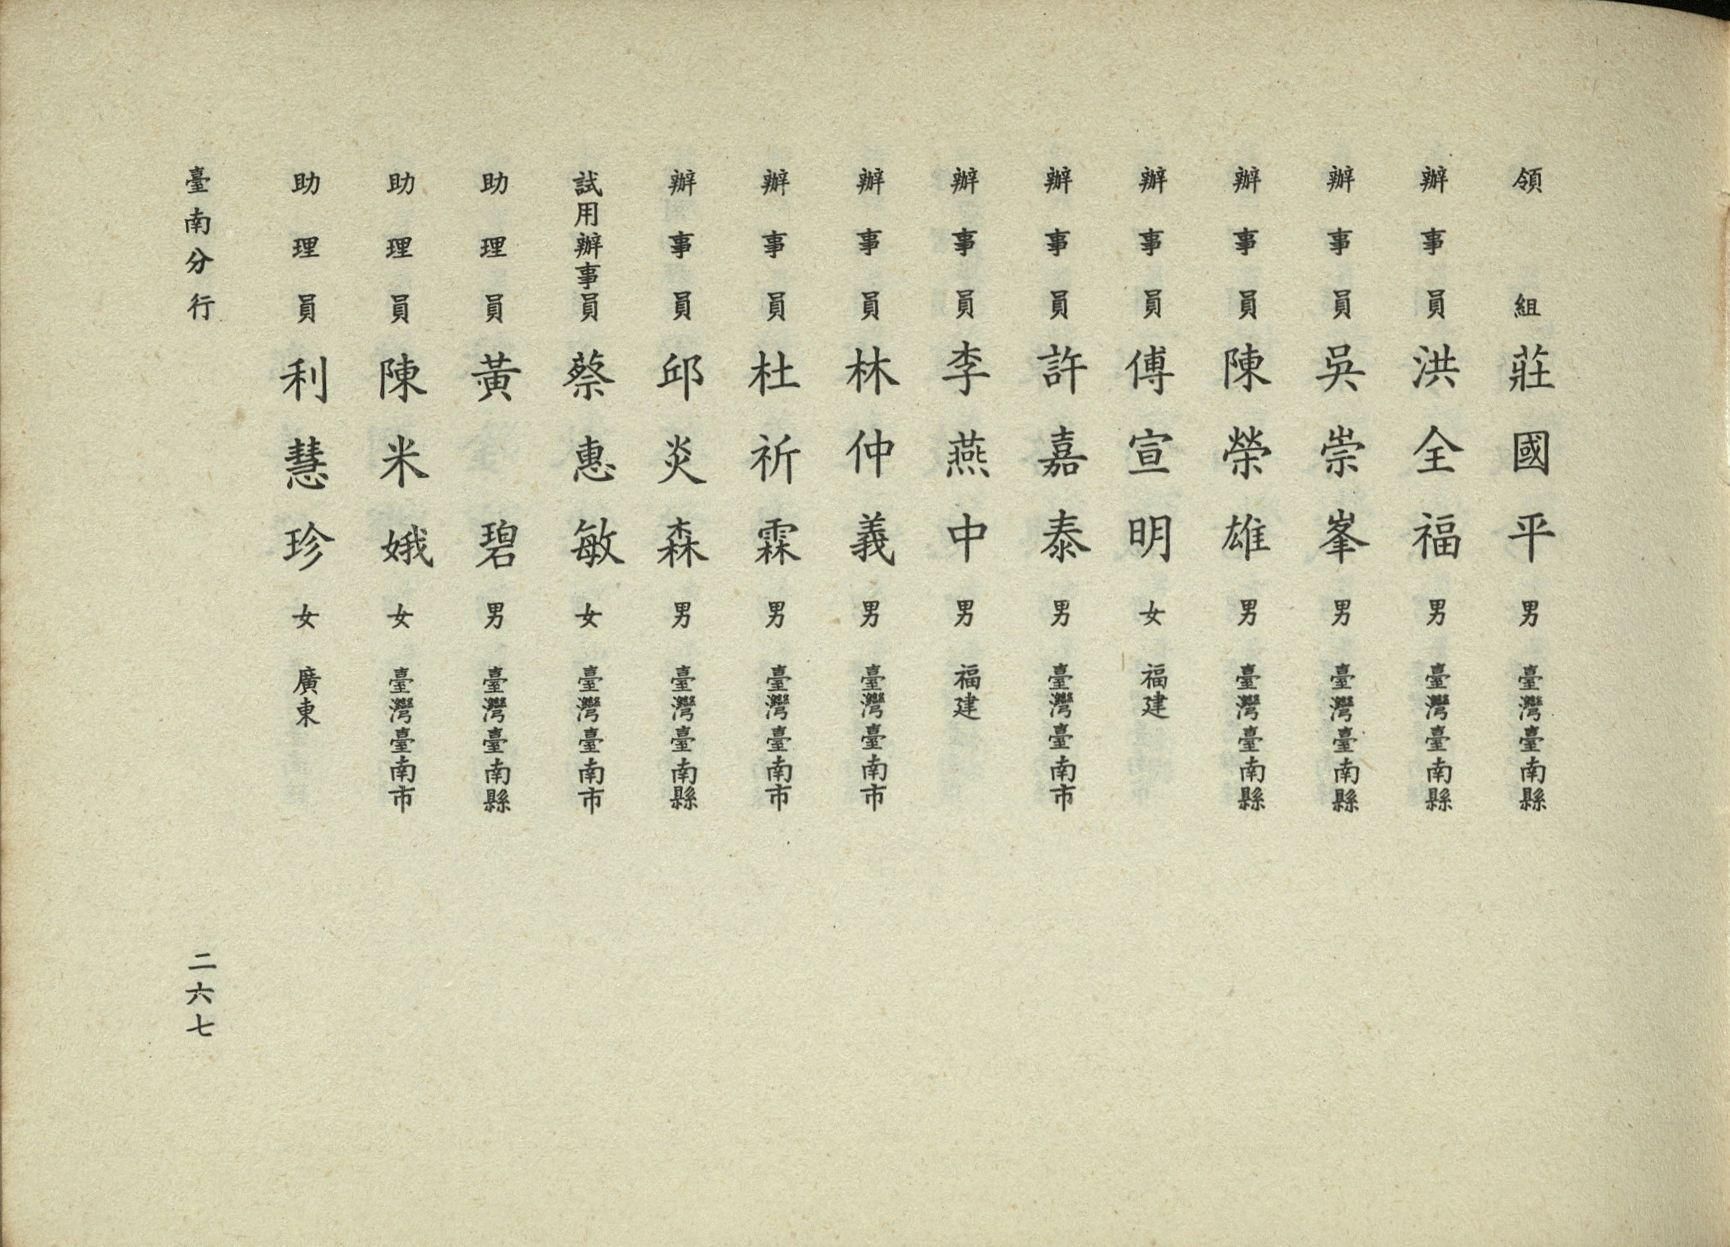 領組莊國平男臺灣臺南縣
辦事員洪全福男臺灣臺南縣
辦事員吳崇峯男臺灣臺南縣
辦事員陳榮雄男臺灣臺南縣
辦事員傅宣明女福建
辦事員許嘉泰男臺灣臺南市
辦事員李燕中男福建
辦事員林仲義男臺灣臺南市
辦事員杜祈霖男臺灣臺南市
辦事員邱炎森男臺灣臺南縣
試用辦事員蔡惠敏女臺灣臺南市
助理員黃碧男臺灣臺南縣
助理員陳米娥女臺灣臺南市
助理員利慧珍女廣東
臺南分行
二六七